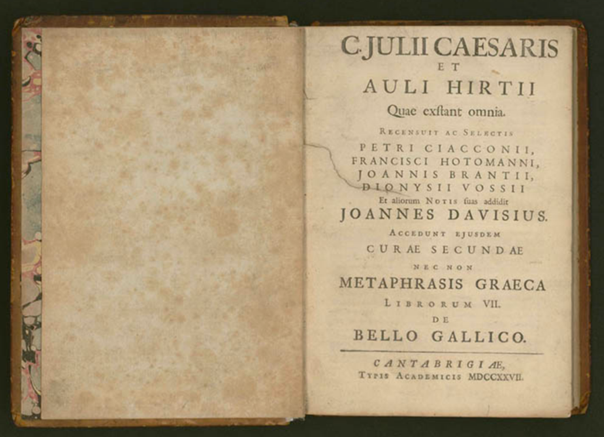 C. JULII CAESARIS
ET
AULI HIRTII
Quae exſtant omnia.
RECENSUIT AC SELECTIS
PETRI CIACCONII,
FRANCISCI HOTOMANNI,
JOANNIS BRANTII,
DIONYSII VOSSII
Et aliorum NOTIS ſuas addidit
JOANNES DAVISIUS.
ACCEDUNT EJUSDEM
CURAE SECUNDAE
NEC NON
METAPHRASIS GRAECA
LIBRORUM VII.
DE
BELLO GALLICO.
CANTABRIGIAE,
TYPIS ACADEMICIS MDCCXXVII.